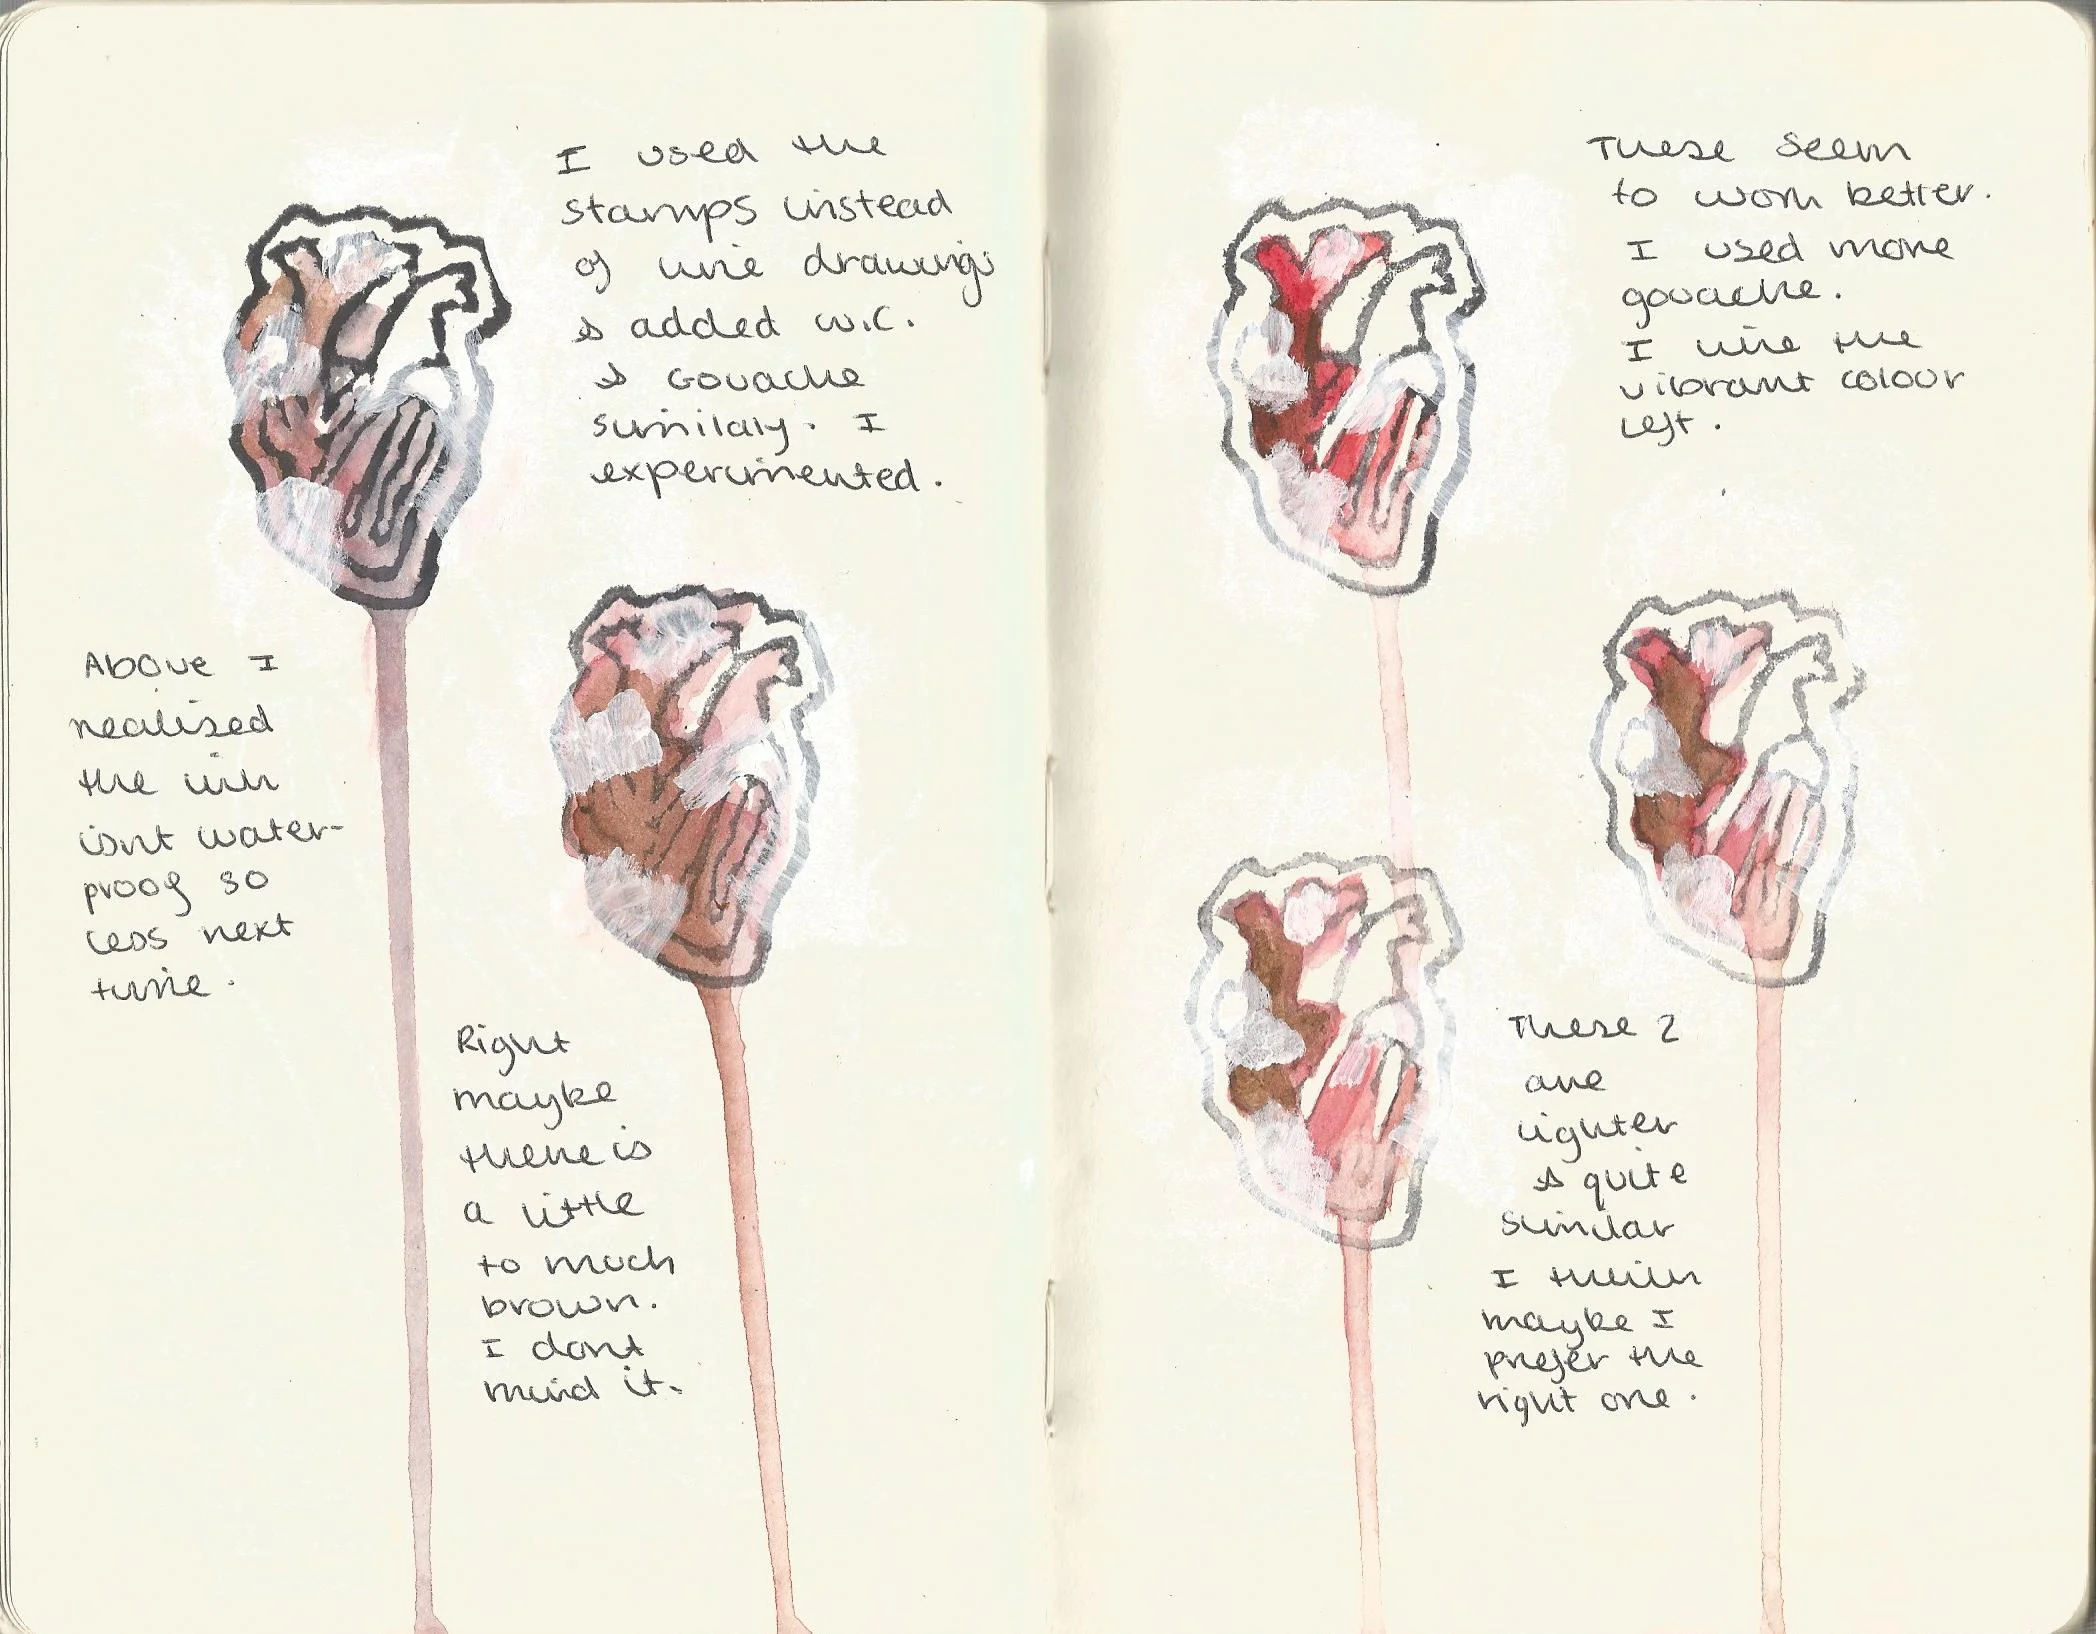 I used the
stamps instead
of line drawings
& added w.c.
& Gouache
similaly. I
experimented.
Above I
realised
the ink
isnt water-
proof so
less next
time.
Right
maybe
there is
a little
to much
brown.
I dont
mind it.
These seem
to work better.
I used more
gouache.
I like the
vibrant colour
left.
These 2
are
lighter
& quite
similar
I think
maybe I
prefer the
right one.